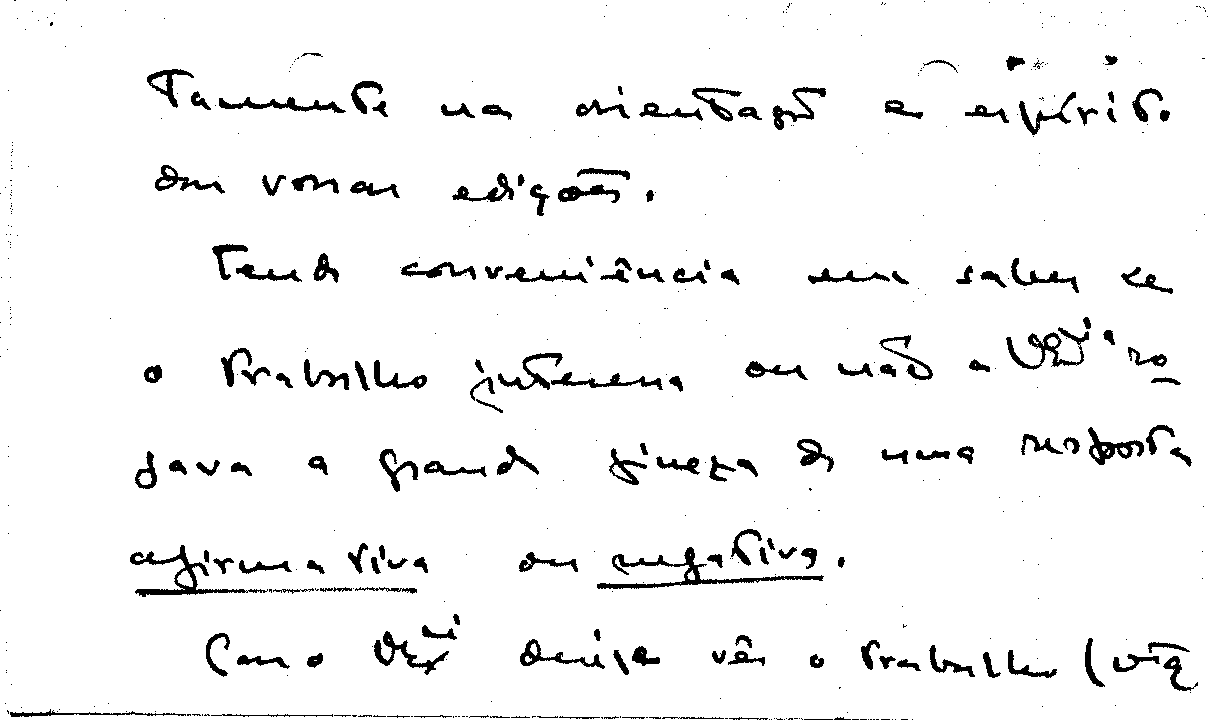 tamente na orientação e espírito
das vossas edições.
Tendo conveniência em saber se
o trabalho interessa ou não a V. Exª ro
gava a grande fineza de uma resposta
afirmativa ou negativa.
Caso V. Exª deseje vêr o trabalho (